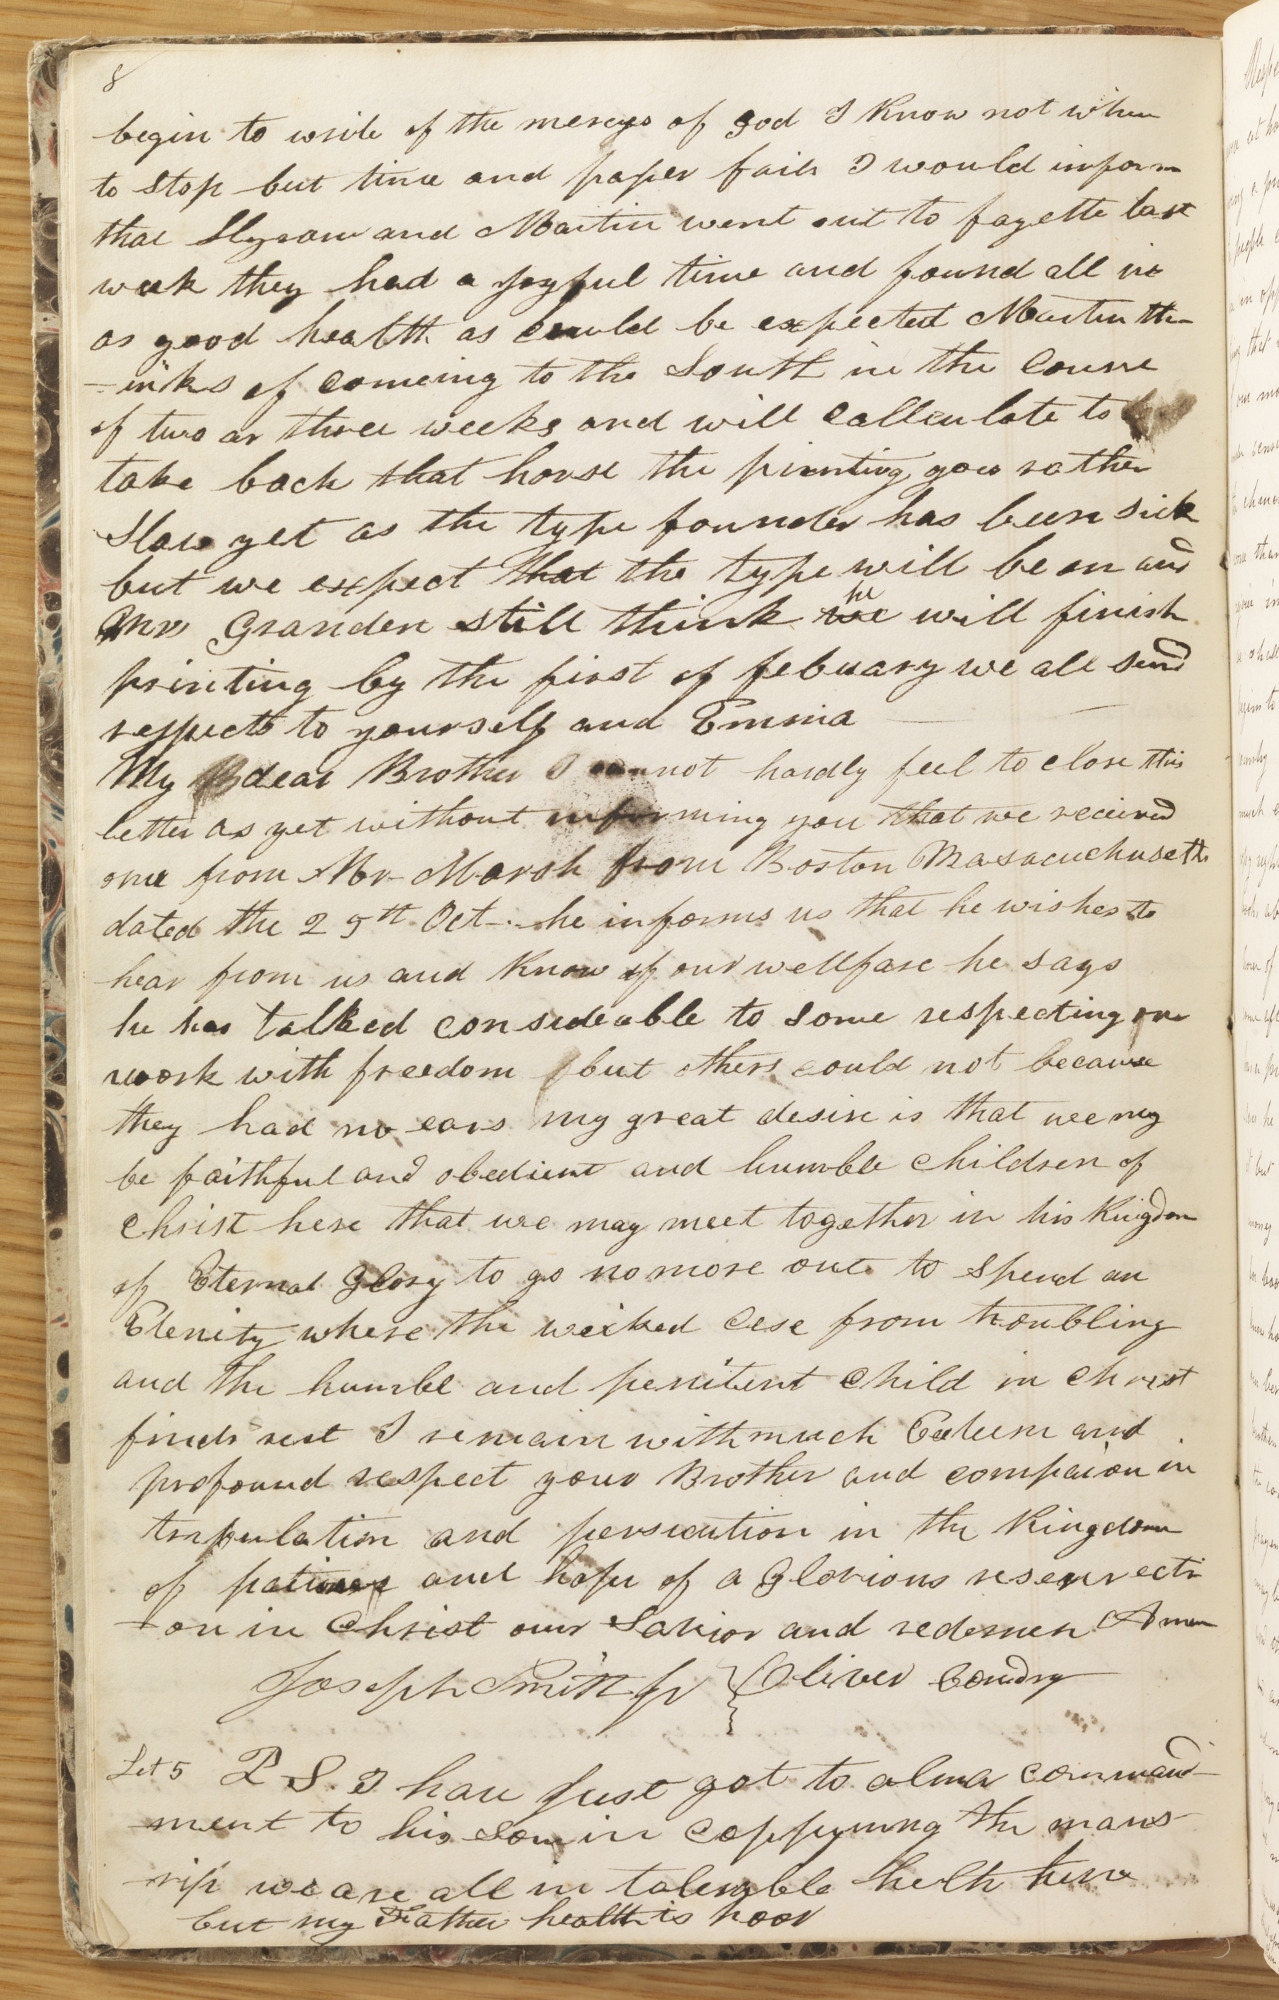 8
begin to write of the mercys of god I know not when
to stop but time and paper fails I would inform
that Hyram and Martin went out to fayette last
week they had a joyful time and found all in
as good health as could be expected Martin th-
-inks of comeing to the South in the course
of two or three weeks and will callculate to
take back that horse the printing goes rather
Slow yet as the type founder has been sick
but we expect that the type will be on and
Mr Granden still think we he will finish
printing by the first of febuary we all send
respects to yourself and Emma
My dear Brother I cannot hardly feel to close this
letter as yet without informing you that we received
one from Mr Marsh from Boston Masacuchusetts
dated the 25th Oct- he informs us that he wishes to
hear from us and know of our wellfare he says
he has talked considerable to some respecting our
work with freedom but others could not because
they had no ears my great desire is that we my
be faithful and obedient and humble children of
Christ here that we may meet together in his Kingdom
of Eternal Glory to go no more out to spend an
Eternity where the wicked cese from troubling
and the humble and penitent child in Christ
finds rest I remain with much Esteem and
profound respect your Brother and compaion in
tribulation and persecution in the Kingdom
of patience and hope of a Glorious reserrecti
-on in Christ our Savior and redemer Amen
Joseph Smith Jr Oliver Cowdry
Let 5 P S. I have just got to alma command-
-ment to his son in coppying the manus-
-rip we are all in tolerable helth here
but my Father health is poor